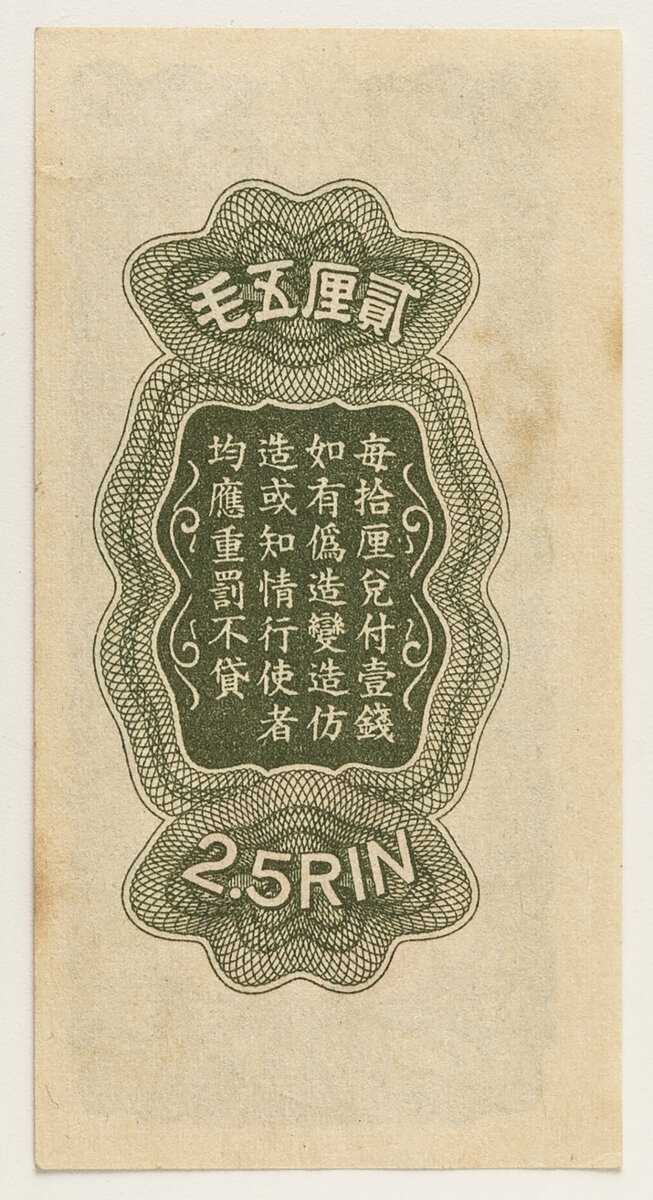 貳厘五毛
每拾厘兌付壹錢
如有僞造變造仿
造或知情行使者
均應重罰不貸
2.5RIN